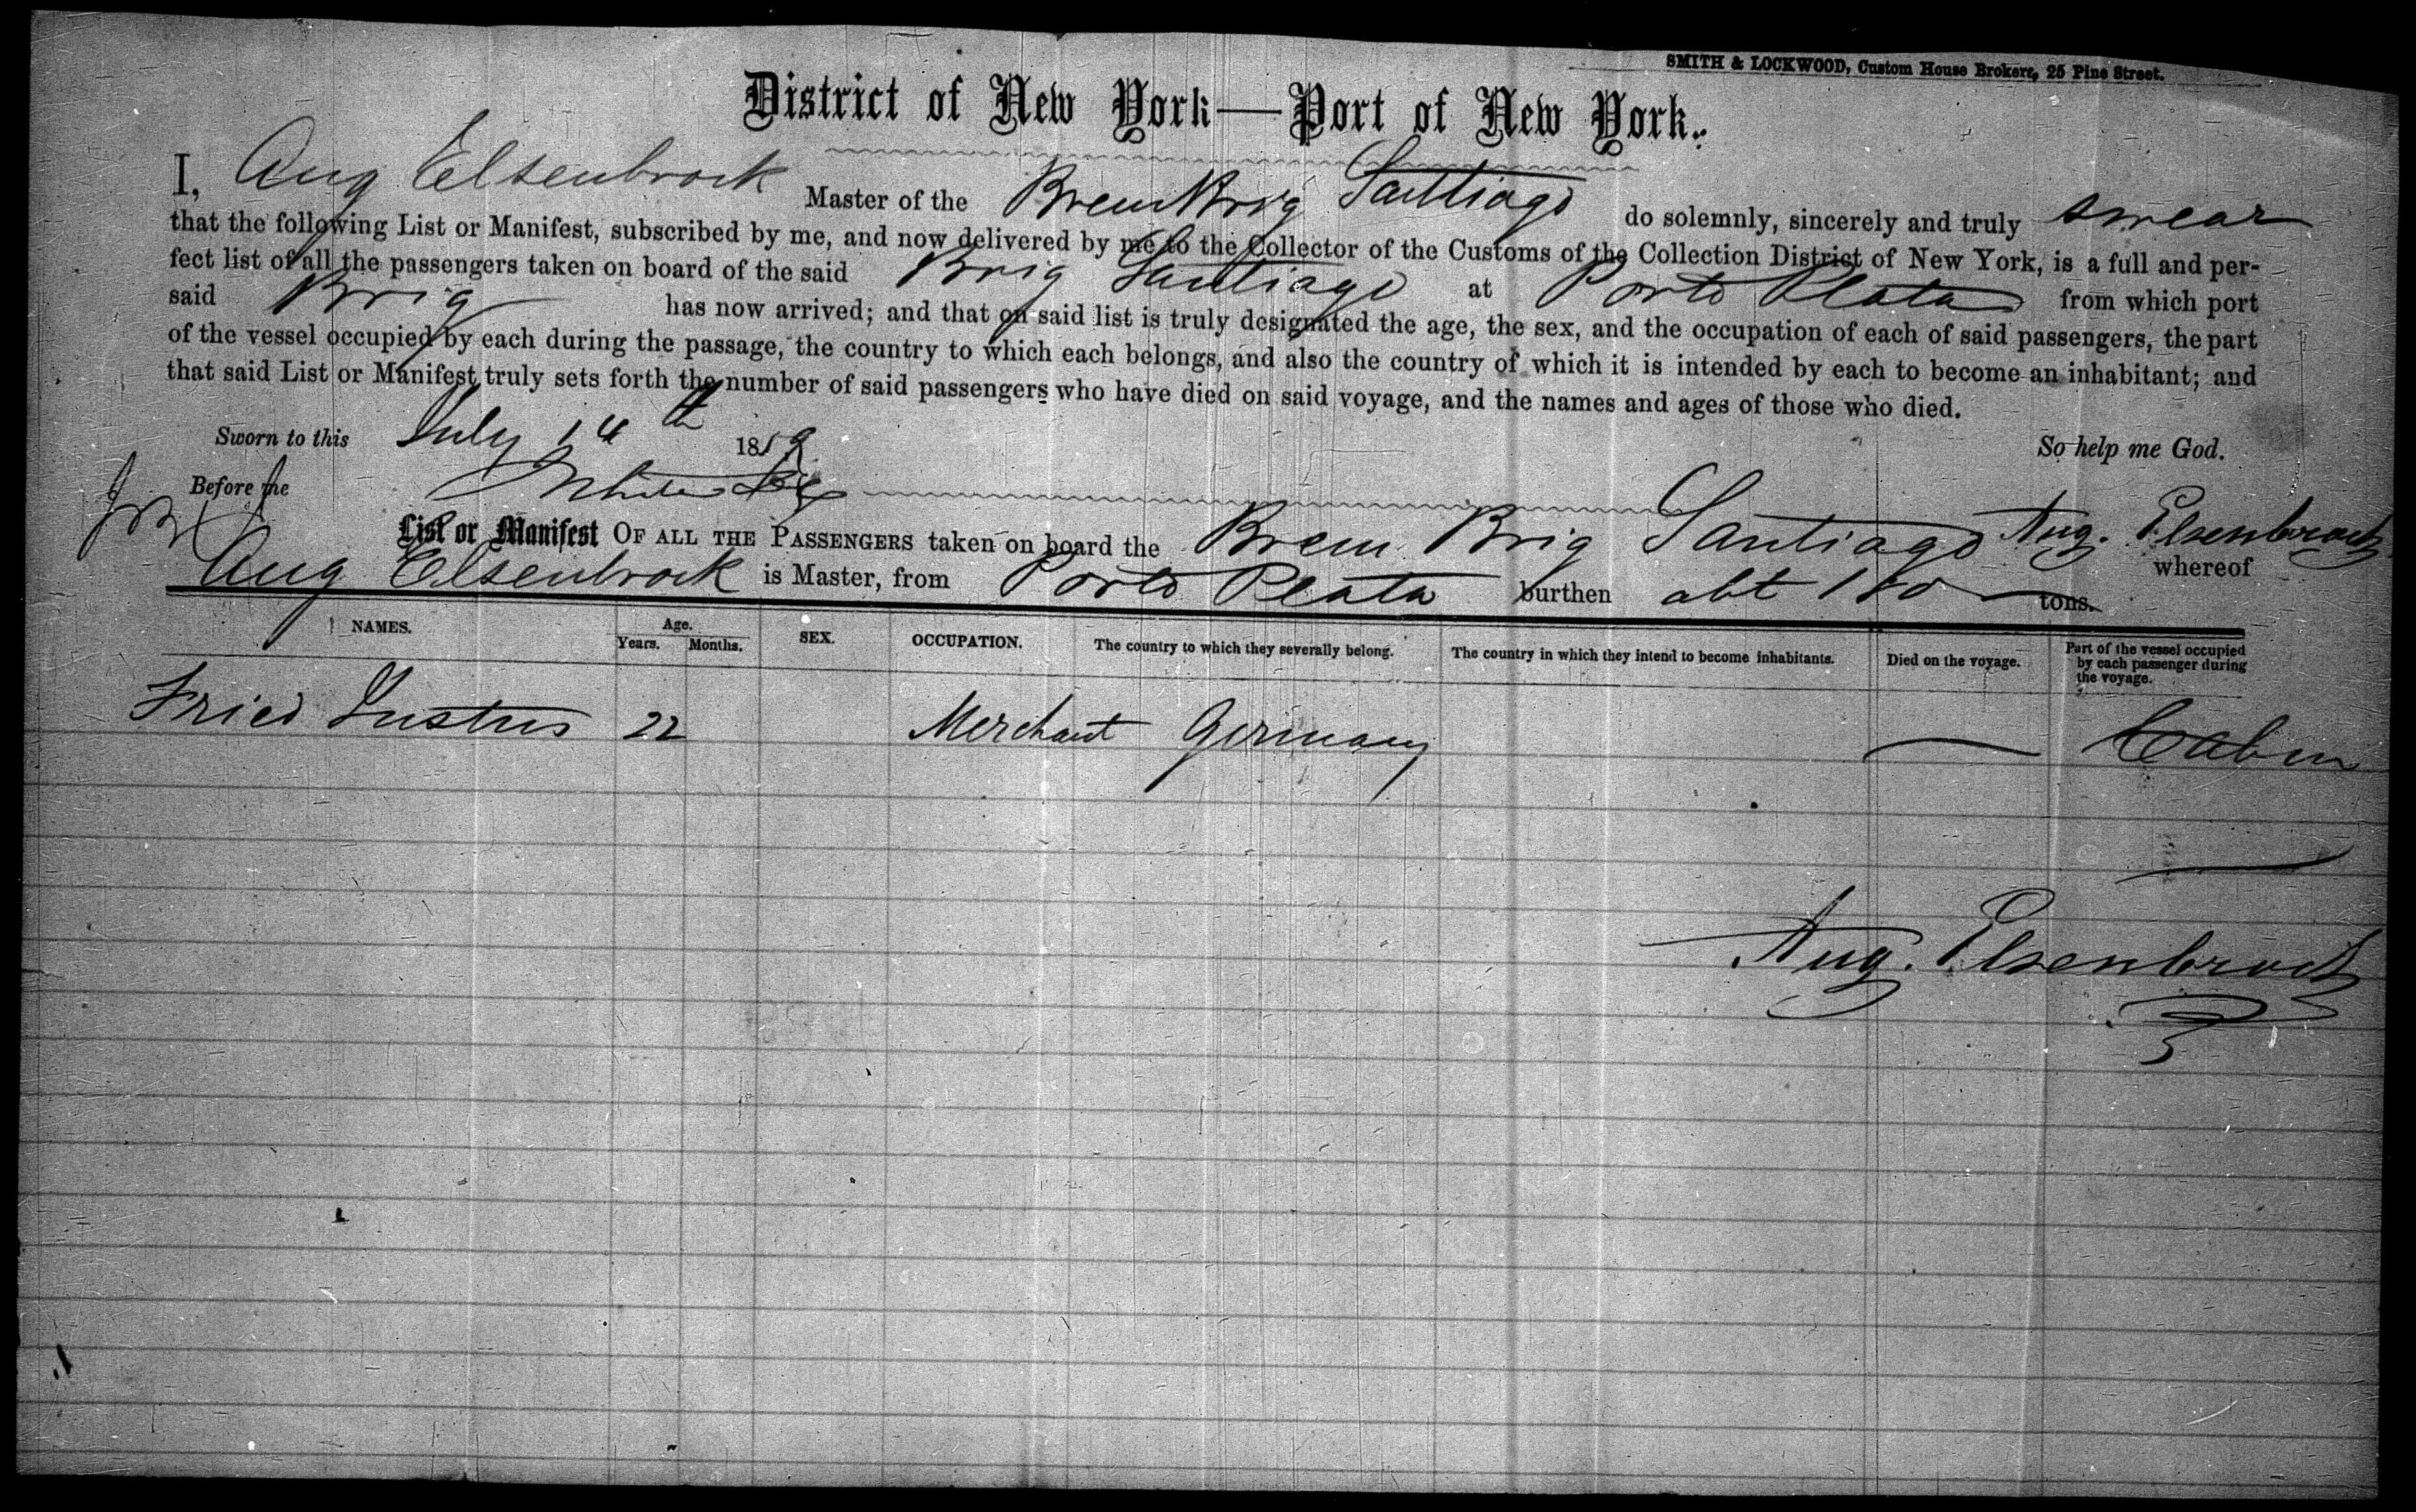 SMITH & LOCKWOOD, Custom House Brokers, 25 Pine Street.
District of New York—Port of New York.
I, Aug Elsenbrock Master of the Brem Brig Santiago do solemnly, sincerely and truly swear
that the following List or Manifest, subscribed by me, and now delivered by me to the Collector of the Customs of the Collection District of New York, is a full and per-
fect list of all the passengers taken on board of the said Brig Santiago at Porto Plata from which port
said Brig has now arrived; and that on said list is truly designated the age, the sex, and the occupation of each of said passengers, the part
of the vessel occupied by each during the passage, the country to which each belongs, and also the country of which it is intended by each to become an inhabitant; and
that said List or Manifest truly sets forth the number of said passengers who have died on said voyage, and the names and ages of those who died.
Sworn to this July 14th 1859 So help me God.
Before me
Aug. Elsenbrock
List or Manifest OF ALL THE PASSENGERS taken on board the Brem Brig Santiago whereof
Aug Elsenbrock is Master, from Porto Plata burthen abt 180 tons.
NAMES. Age. Years. Months. SEX. OCCUPATION. The country to which they severally belong. The country in which they intend to become inhabitants. Died on the voyage. Part of the vessel occupied by each passenger during the voyage.
Fried Justus 22 Merchant Germany — Cabin
Aug. Elsenbrock